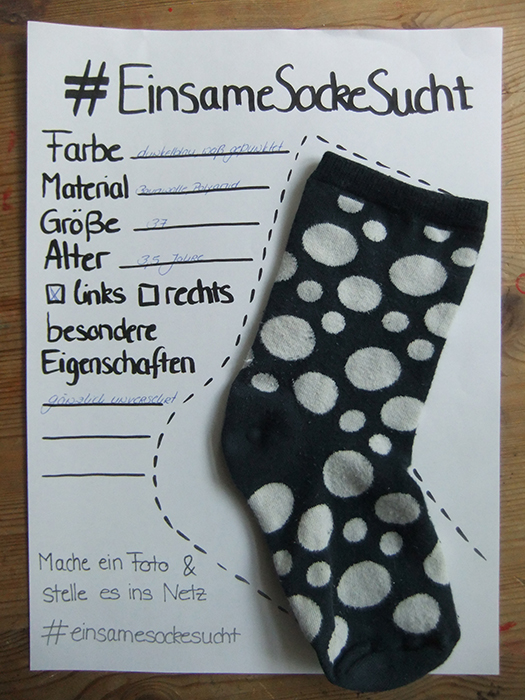 #EinsameSockeSucht
Farbe dunkelblau weiß gepunktet
Material Baumwolle Polyamid
Größe 37
Alter 3,5 Jahre
☒ links ☐ rechts
besondere
Eigenschaften
gänzlich unversehrt
Mache ein Foto &
stelle es ins Netz
#einsamesockesucht